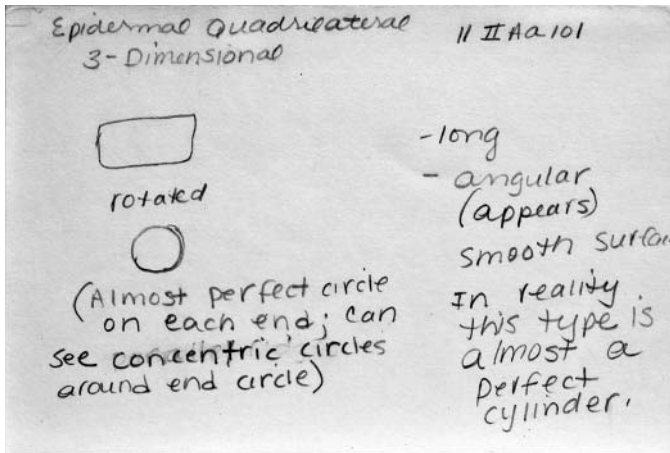 Epidermal Quadrilateral
3-Dimensional
11 II Aa 101
rotated
(Almost perfect circle
on each end; can
see concentric circles
around end circle)
-long
- angular
(appears)
smooth
In reality
this type is
almost a
perfect
cylinder.